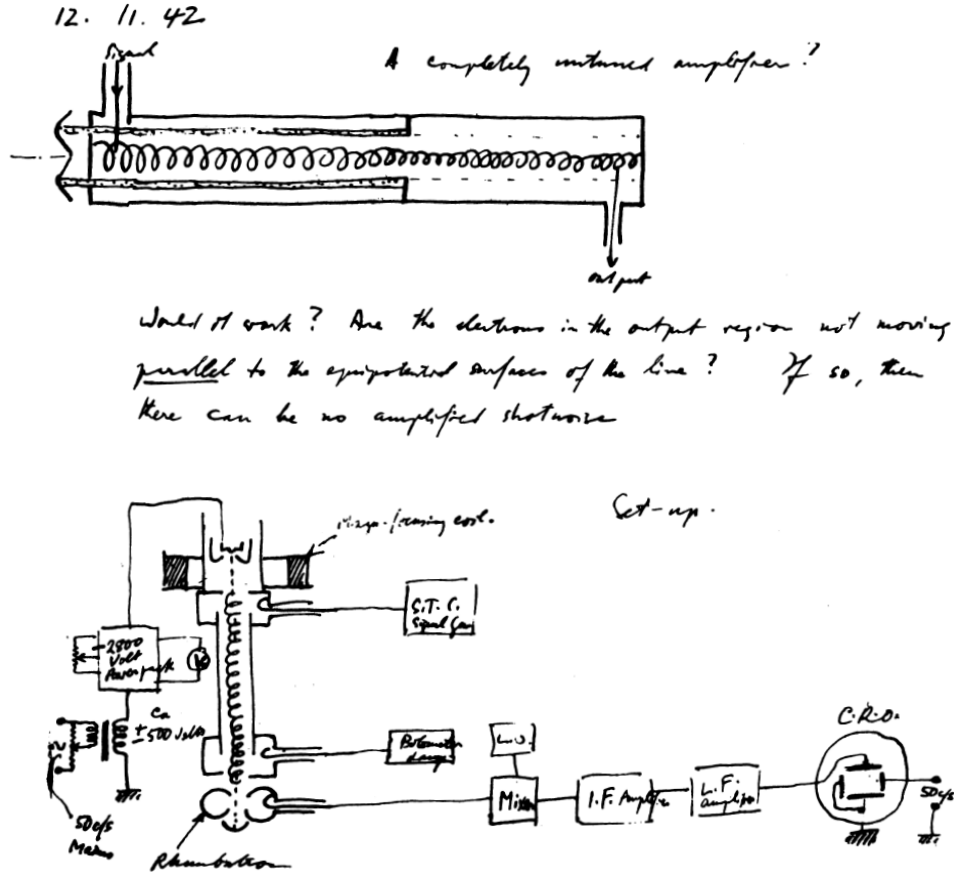 12. 11. 42
Signal
A completely untuned amplifier?
output
Would it work? Are the electrons in the output region not moving
parallel to the equipotential surfaces of the line? If so, then
there can be no amplified shotnoise
Set-up.
focusing coil.
S.T.C.
Signal Gen
2800
Volt
Power pack
Ca
± 500 Volts
50 c/s
Mains
Bolometer
Lamp
L.O.
Mixer
I.F. Amplifier
L.F.
amplifier
C.R.O.
50 c/s
Rhumbatron